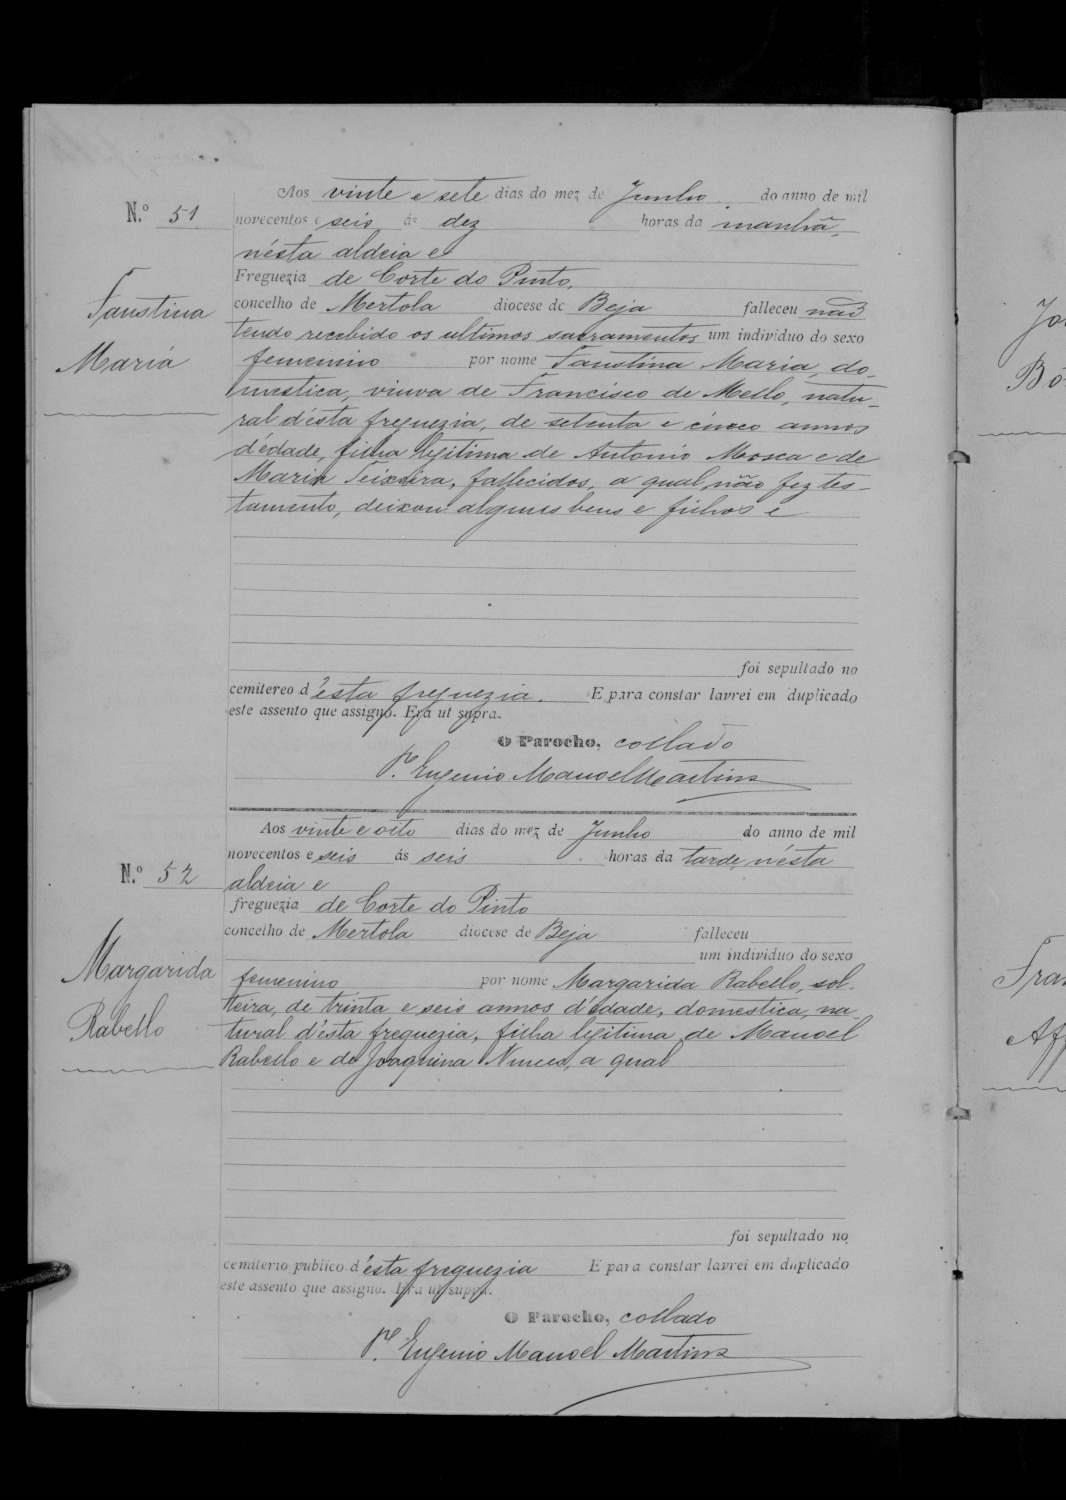 Aos vinte e sete dias do mez de Junho do anno de mil
N.º 51
novecentos e seis ás dez horas da manhã,
n'ésta aldeia e
Freguezia de Corte do Pinto,
Faustina
Maria
concelho de Mertola diocese de Beja falleceu não
tendo recebido os ultimos sacramentos um individuo do sexo
femenino por nome Faustina Maria, do-
mestica, viuva de Francisco de Mello, natu-
ral d'ésta freguezia, de setenta e cinco annos
d'édade, filha legitima de Antonio Mosca e de
Maria Teixeira, fallecidos, a qual não fez tes-
tamento, deixou alguns bens e filhos e
foi sepultado no
cemitereo d'ésta freguezia. E para constar lavrei em duplicado
este assento que assigno. Era ut supra.
O Parocho, collado
P.e Eugenio Manoel Martins
Aos vinte e oito dias do mez de Junho do anno de mil
novecentos e seis ás seis horas da tarde, n'ésta
N.º 52
aldeia e
freguezia de Corte do Pinto
concelho de Mertola diocese de Beja falleceu
um individuo do sexo
Margarida
Rabello
femenino por nome Margarida Rabello, sol-
teira, de trinta e seis annos d'édade, domestica, na-
tural d'ésta freguezia, filha legitima de Manoel
Rabello e de Joaquina Nunes, a qual
foi sepultado no
cemiterio publico d'ésta freguezia E para constar lavrei em duplicado
este assento que assigno. Era ut supra.
O Parocho, collado
P.e Eugenio Manoel Martins